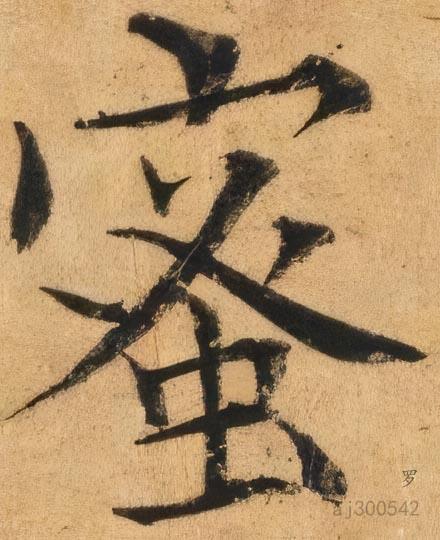 蜜
罗
aj300542